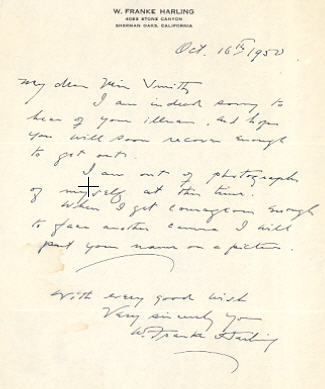 W. FRANKE HARLING
4053 STONE CANYON
SHERMAN OAKS, CALIFORNIA
Oct. 16th 1950
My dear Smith
I am indeed sorry to
hear of your illness, and hope
you will soon recover enough
to get out.
I am out of photographs
of myself at this time.
When I get courageous enough
to face another camera I will
put your name on a picture.
With every good wish
Very sincerely you
W. Franke Harling